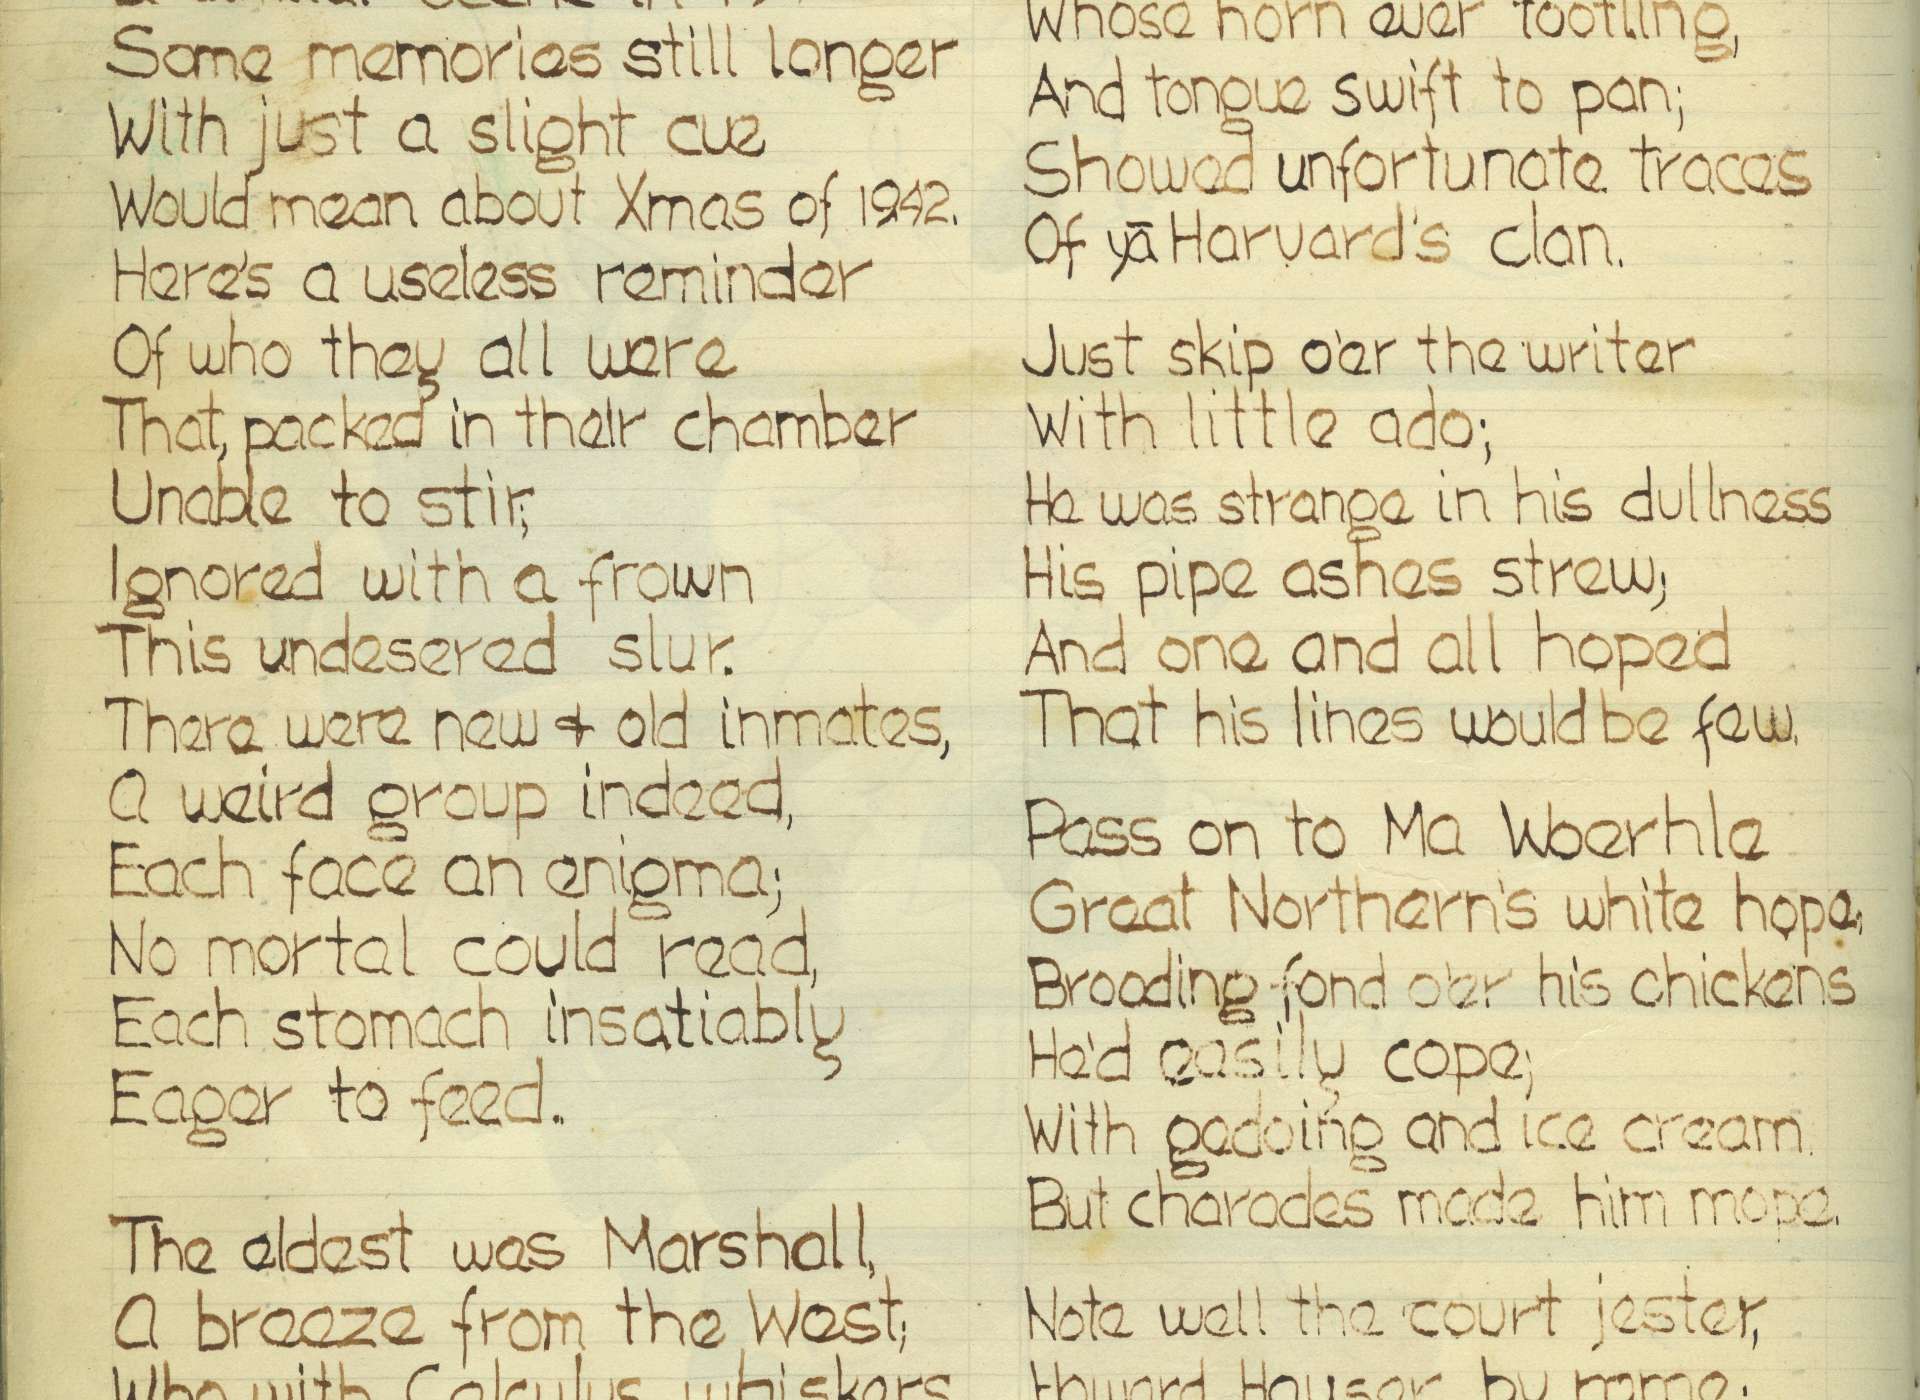 Some memories still longer
With just a slight cue
Would mean about Xmas of 1942.
Here's a useless reminder
Of who they all were
That, packed in their chamber
Unable to stir;
Ignored with a frown
This undesered slur.
There were new & old inmates,
A weird group indeed,
Each face an enigma;
No mortal could read,
Each stomach insatiably
Eager to feed.
The eldest was Marshall,
A breeze from the West;
Who with Calculus whiskers
Whose horn ever tootling,
And tongue swift to pan;
Showed unfortunate traces
Of yā Harvard's clan.
Just skip o'er the writer
With little ado;
He was strange in his dullness
His pipe ashes strew;
And one and all hoped
That his lines would be few.
Pass on to Ma Woerhle
Great Northern's white hope,
Brooding fond o'er his chickens
He'd easily cope;
With gadoing and ice cream
But charades made him mope.
Note well the court jester,
Hauser by name;